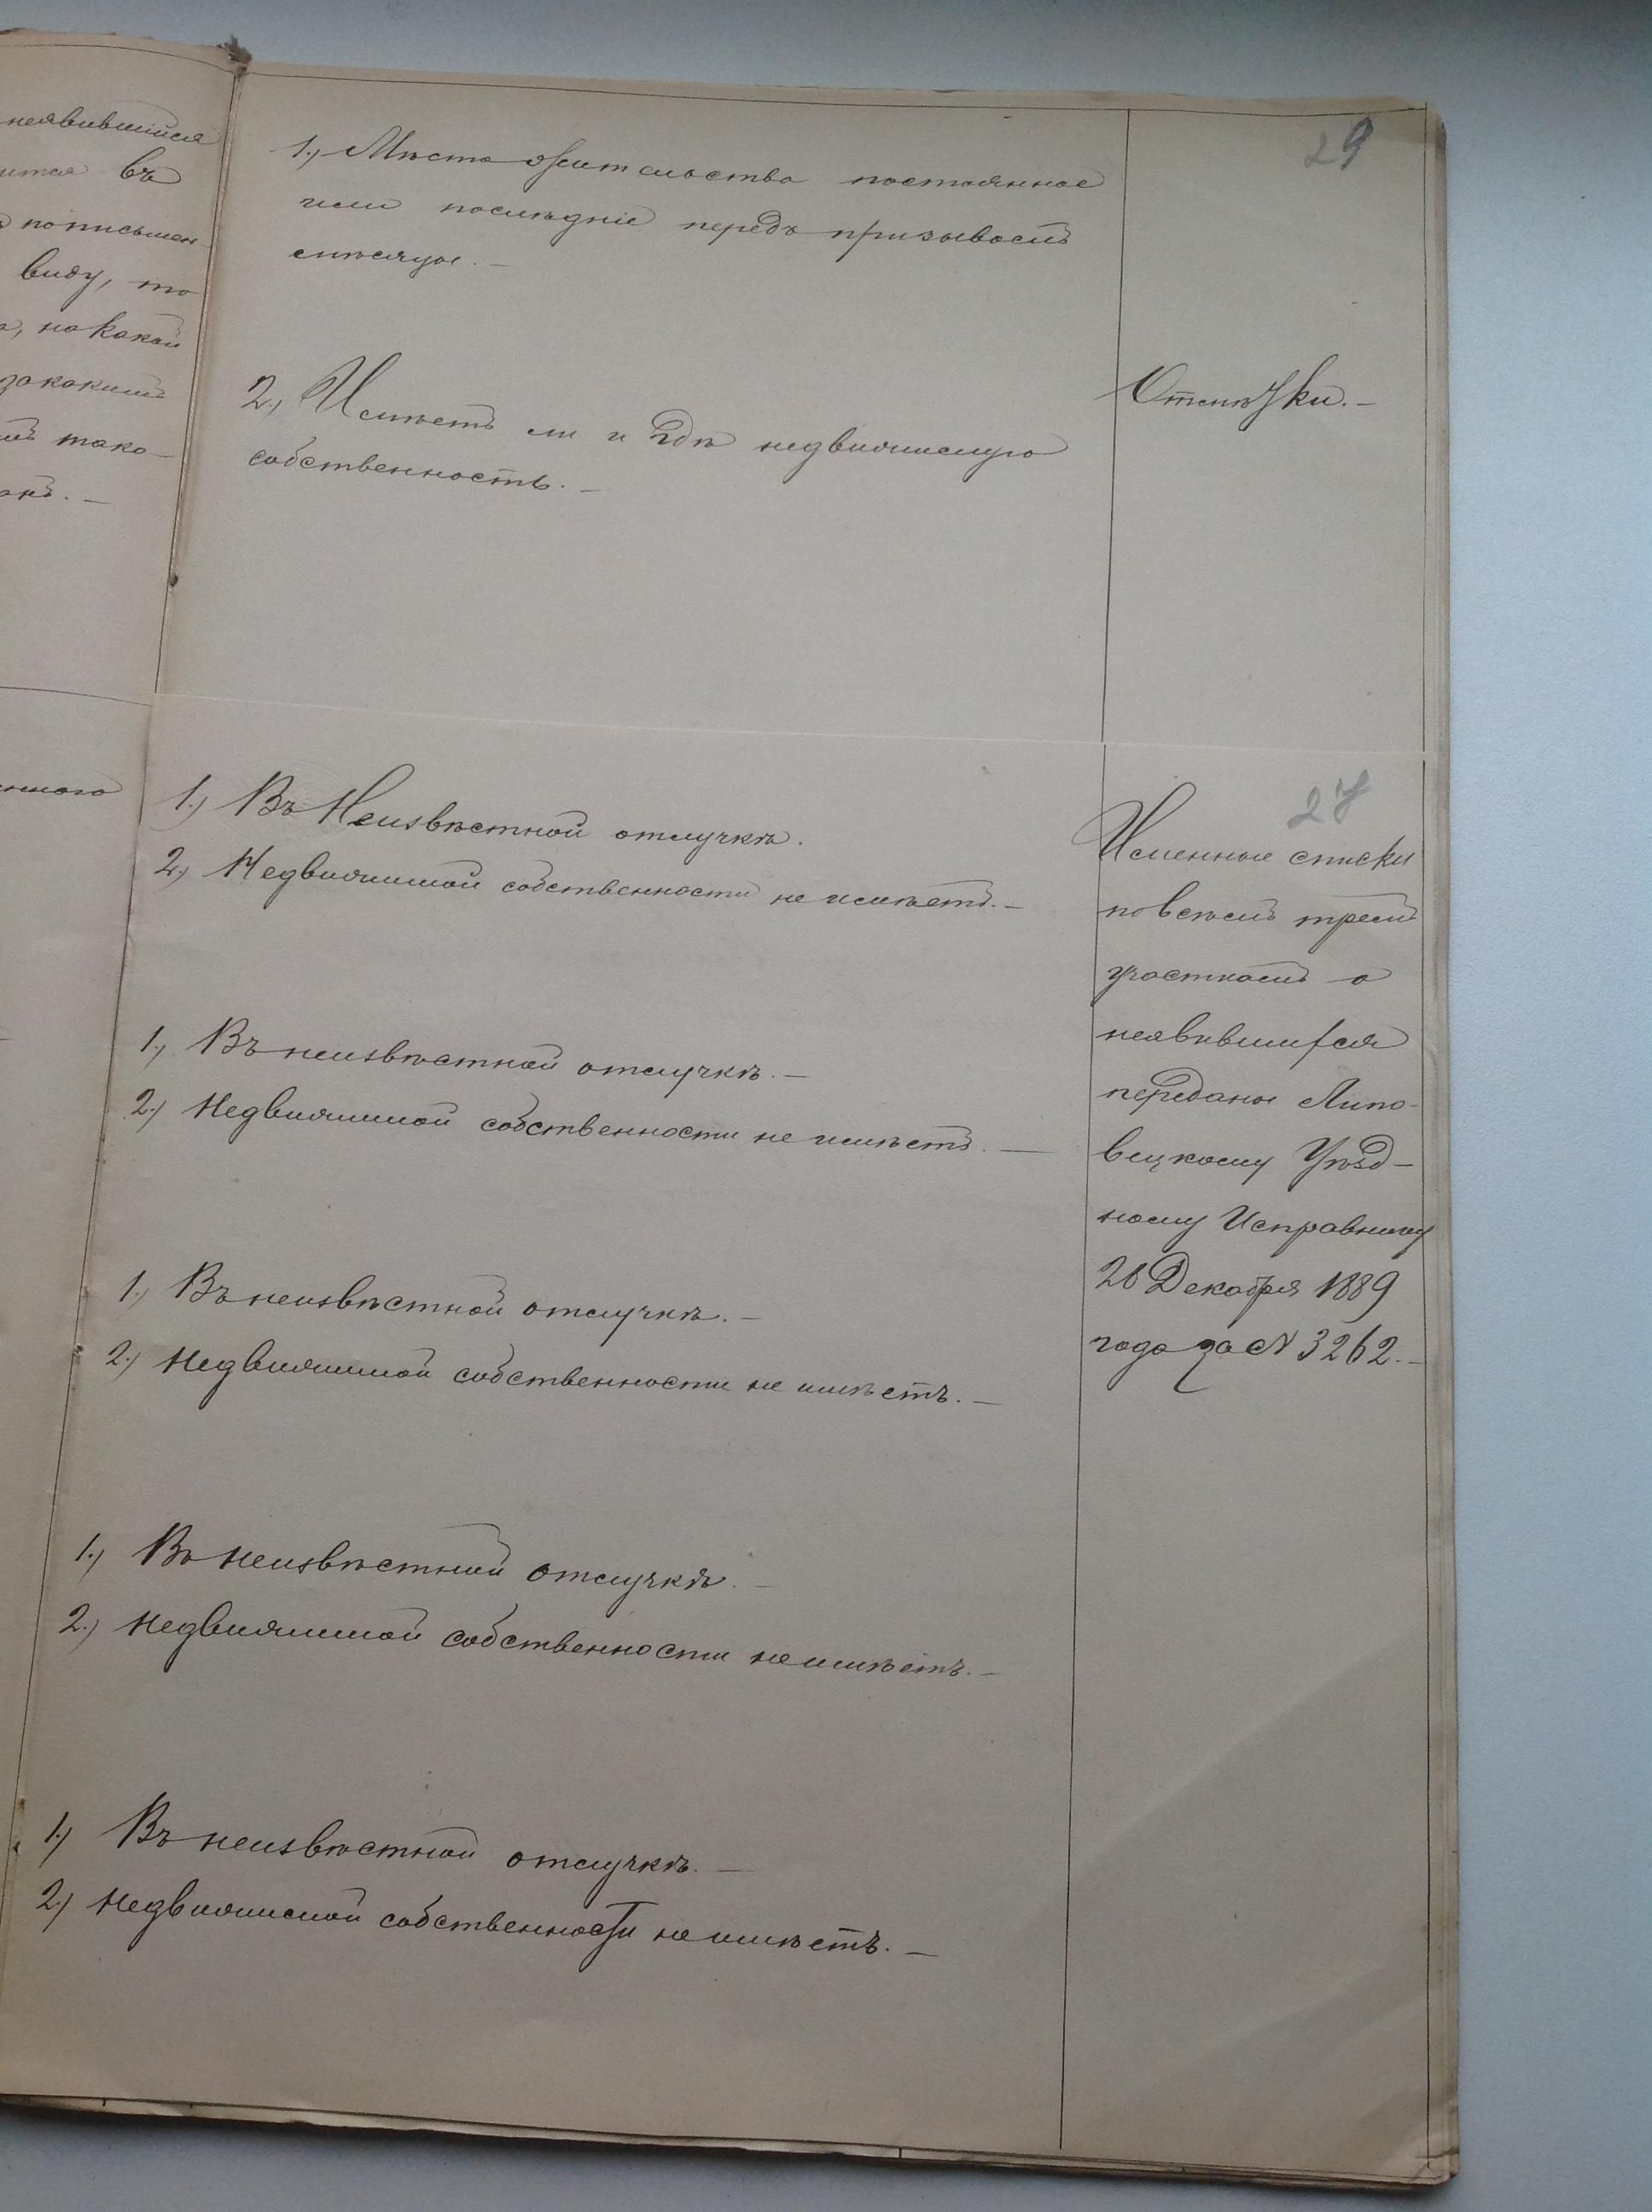 неявившийся
въ
по письмен-
виду, то
на какой
за какимъ
тако-
29
1., Место жительства постоянное
или последніе передъ призывомъ
месяцы. —
2., Имѣетъ ли и гдѣ недвижимую
собственность. —
Отметки. —
27
1.) Въ Неизвѣстной отлучкѣ.
2.) Недвижимой собственности не имѣетъ. —
1., Въ неизвѣстной отлучкѣ. —
2.) Недвижимой собственности не имѣетъ. —
1.) Въ неизвѣстной отлучкѣ. —
2.) Недвижимой собственности не имѣетъ. —
1.) Въ неизвѣстной отлучкѣ. —
2.) Недвижимой собственности не имѣетъ. —
1.) Въ неизвѣстной отлучкѣ. —
2.) Недвижимой собственности не имѣетъ. —
Именные списки
по всѣмъ тремъ
участкамъ о
неявившихся
переданы Липо-
вецкому Уѣзд-
ному Исправнику
26 Декабря 1889
года за № 3262. —